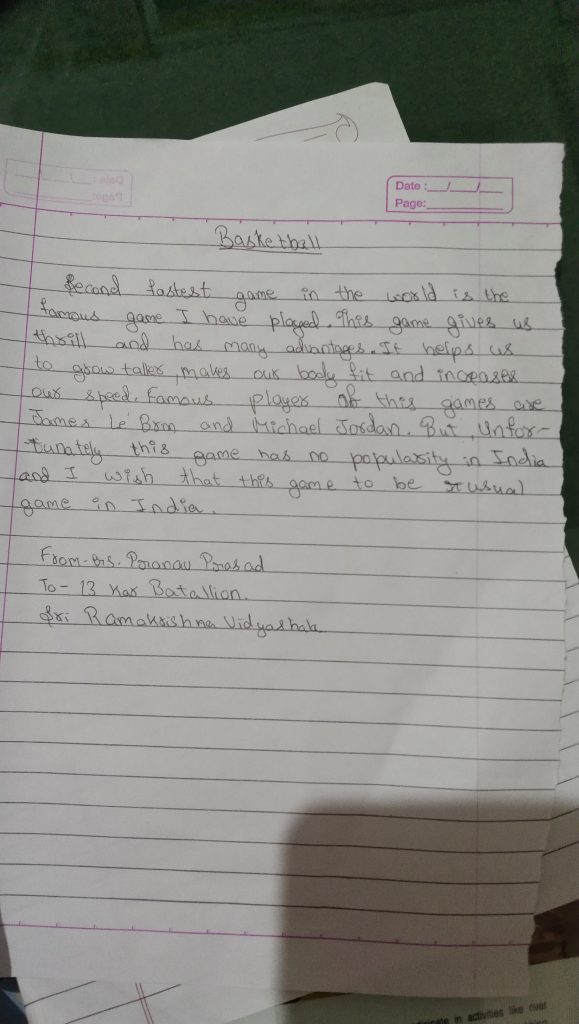 Date : __/__/__
Page: ________
Basketball
Second fastest game in the world is the
famous game I have played. This game gives us
thrill and has many advantages. It helps us
to grow taller, makes our body fit and increases
our speed. Famous player of this games are
James Le' Bron and Michael Jordan. But, Unfor-
tunately this game has no popularity in India
and I wish that this game to be usual
game in India.
From - Pranav Prasad
To - 13 Kar Batallion.
Sri Ramakrishna Vidyashala
ticipate in activities like over